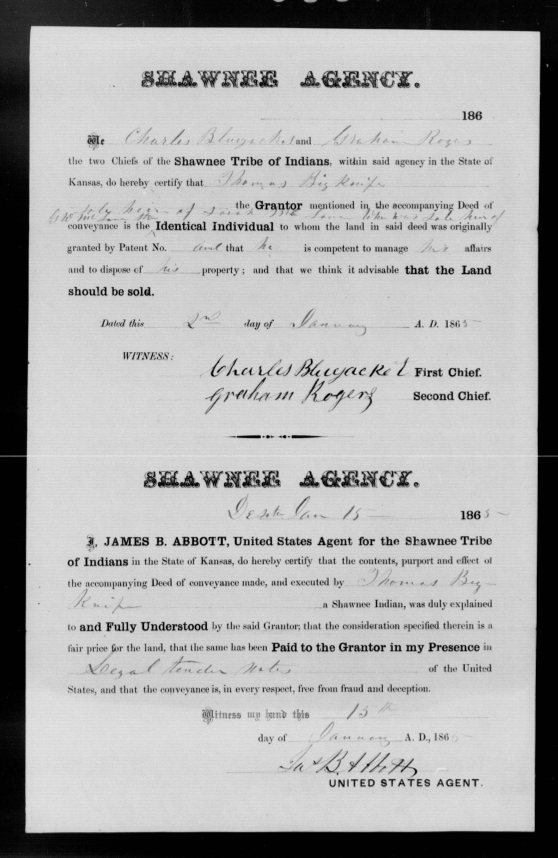 SHAWNEE AGENCY.
186
We Charles Bluejacket and Graham Rogers
the two Chiefs of the Shawnee Tribe of Indians, within said agency in the State of
Kansas, do hereby certify that Thomas Big Knife
the Grantor mentioned in the accompanying Deed of
sole heir of who was sole heir of
conveyance is the Identical Individual to whom the land in said deed was originally
granted by Patent No. and that he is competent to manage his affairs
and to dispose of his property; and that we think it advisable that the Land
should be sold.
Dated this 2nd day of January A. D. 1865
WITNESS:
Charles Bluejacket First Chief.
Graham Rogers Second Chief.
SHAWNEE AGENCY.
DeSoto Jan 15 1865
I, JAMES B. ABBOTT, United States Agent for the Shawnee Tribe
of Indians in the State of Kansas, do hereby certify that the contents, purport and effect of
the accompanying Deed of conveyance made, and executed by Thomas Big
Knife a Shawnee Indian, was duly explained
to and Fully Understood by the said Grantor; that the consideration specified therein is a
fair price for the land, that the same has been Paid to the Grantor in my Presence in
Legal tender notes of the United
States, and that the conveyance is, in every respect, free from fraud and deception.
Witness my hand this 15th
day of January A. D., 1865
Jas B Abbott
UNITED STATES AGENT.